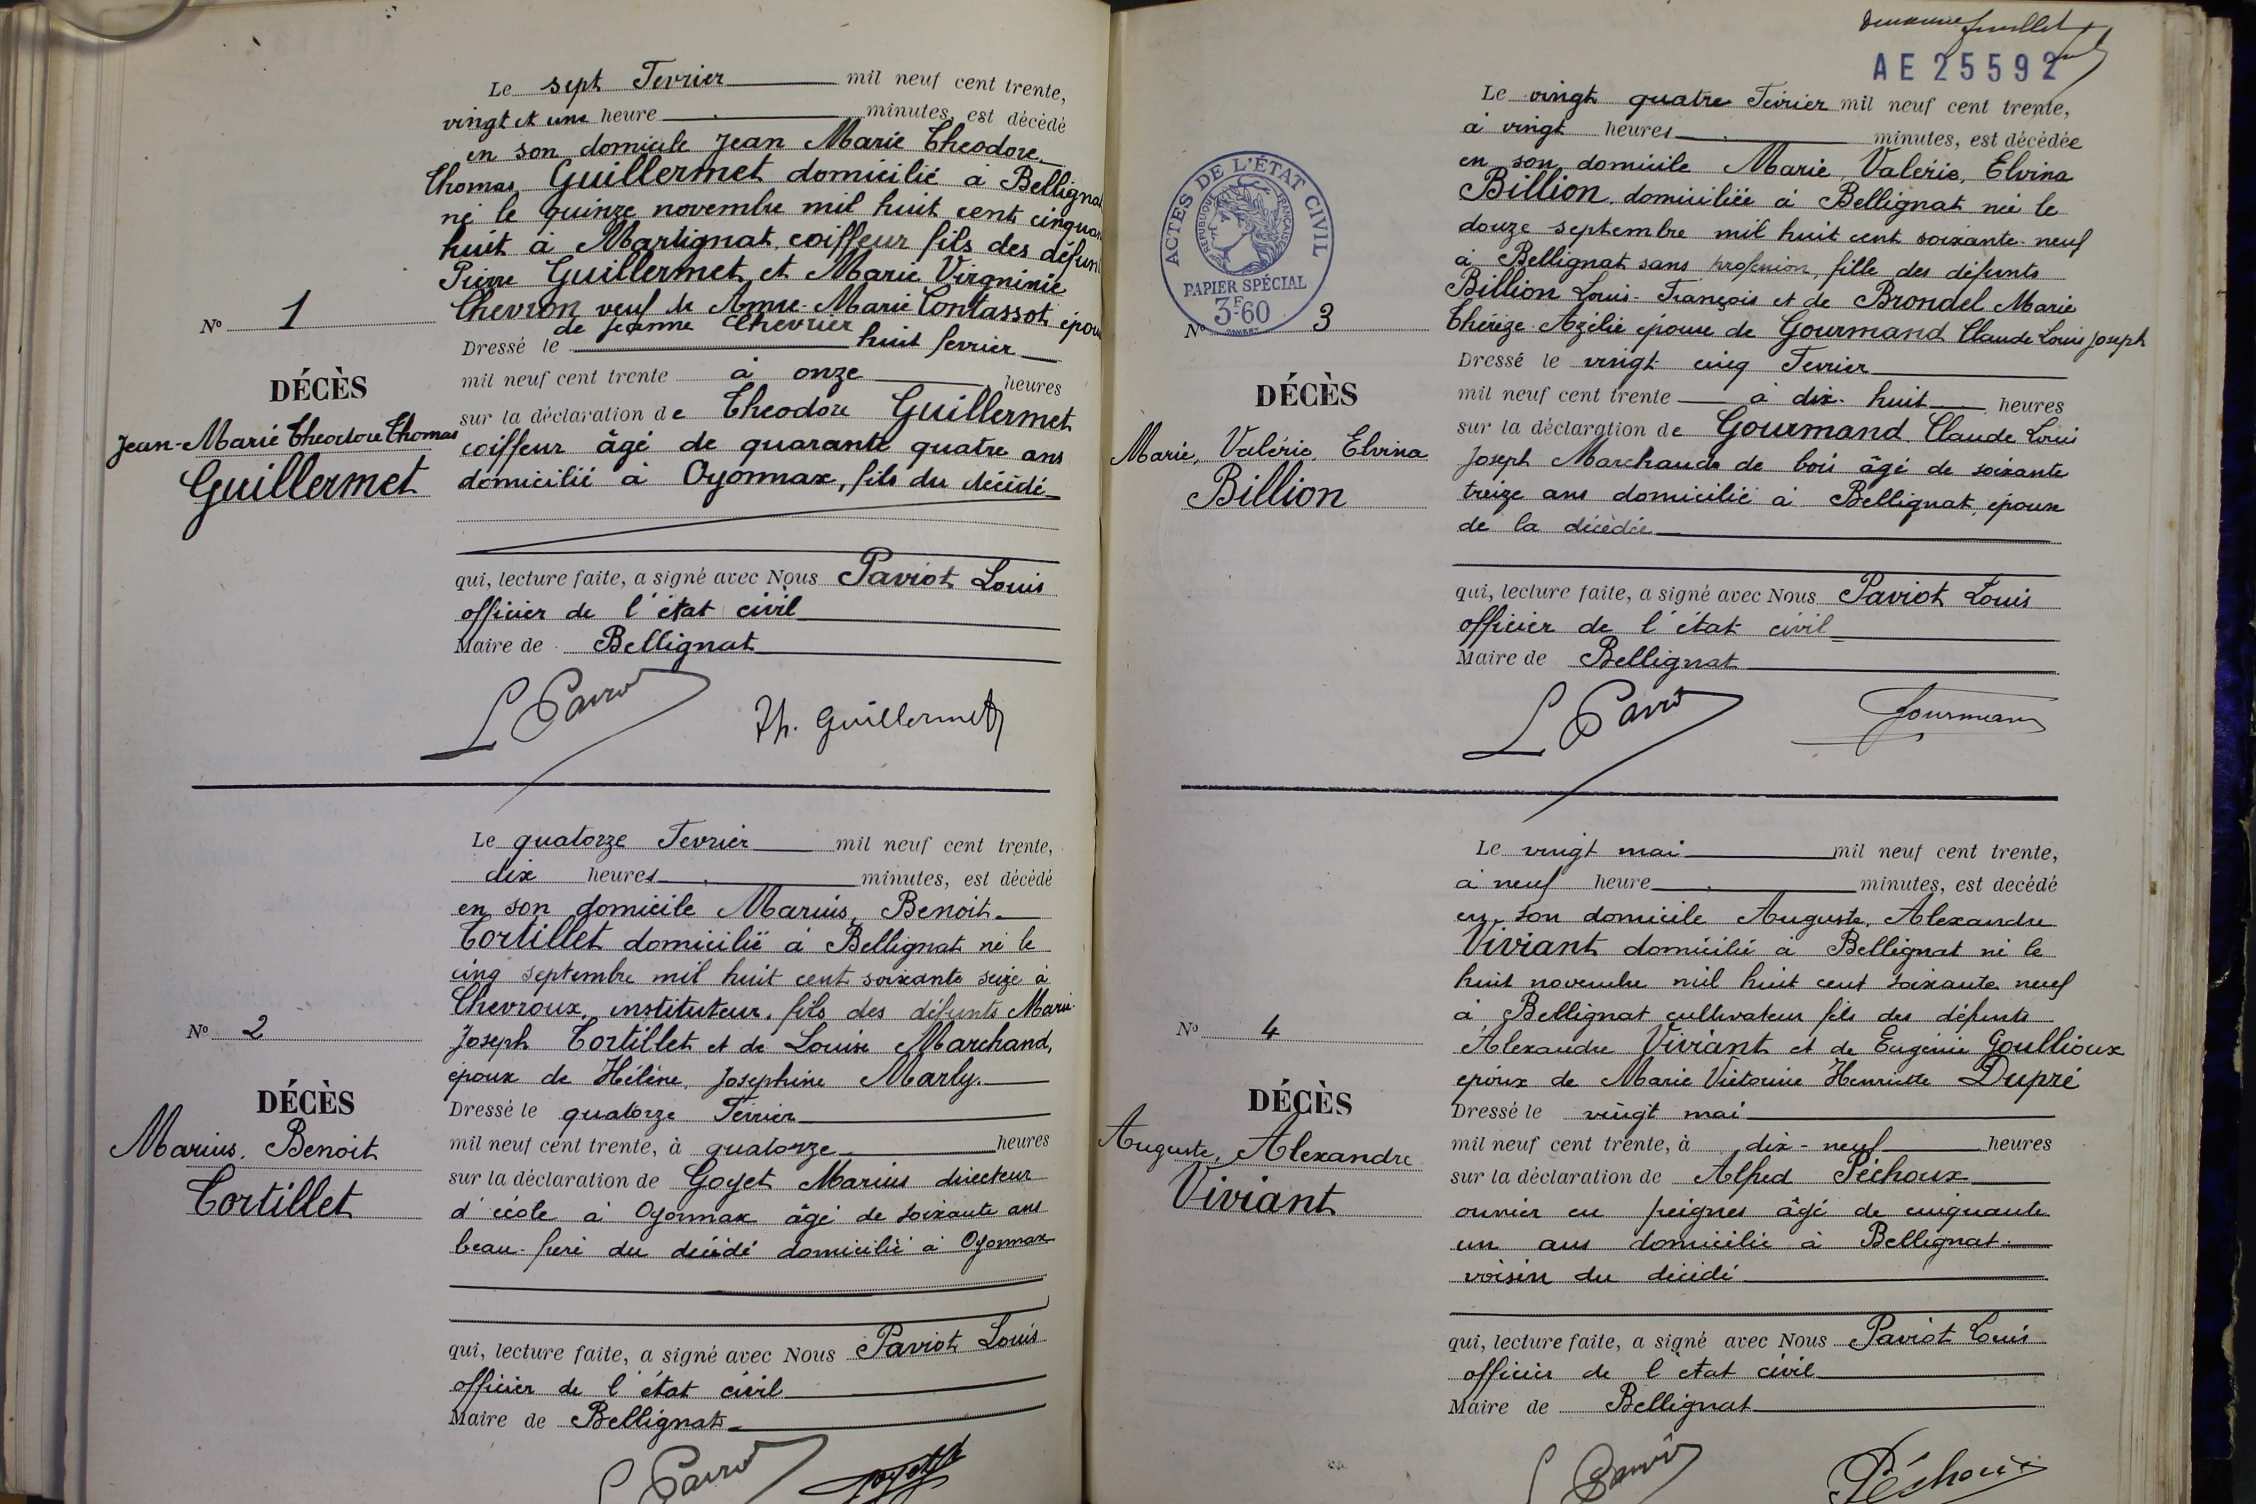 Le sept Fevrier mil neuf cent trente,
vingt et une heure minutes, est décédé
en son domicile Jean Marie Theodore
Thomas Guillermet domicilié à Bellignat
né le quinze novembre mil huit cent cinquan
huit à Martignat coiffeur fils des défun
Pierre Guillermet et Marie Virgninie
Chevron veuf de Anne-Marie Contassot épou
de Jeanne Chevrier
Dressé le huit fevrier
mil neuf cent trente à onze heures
sur la déclaration de Theodore Guillermet
coiffeur âgé de quarante quatre ans
domicilié à Oyonnax, fils du décédé
qui, lecture faite, a signé avec Nous Paviot Louis
officier de l'état civil
Maire de Bellignat
L Paviot
Th. Guillermet
No 1
DÉCÈS
Jean-Marie Theodore Thomas
Guillermet
Le quatorze Fevrier mil neuf cent trente,
dix heures minutes, est décédé
en son domicile Marius, Benoit
Tortillet domicilié à Bellignat né le
cinq septembre mil huit cent soixante seize à
Chevroux, instituteur, fils des défunts Marie
Joseph Tortillet et de Louise Marchand,
époux de Hélène, Josephine Marly.
Dressé le quatorze Fevrier
mil neuf cent trente, à quatorze heures
sur la déclaration de Goyet Marius directeur
d'école à Oyonnax âgé de soixante ans
beau-frère du décédé domicilié à Oyonnax
qui, lecture faite, a signé avec Nous Paviot Louis
officier de l'état civil
Maire de Bellignat
L Paviot
Goyet
No 2
DÉCÈS
Marius, Benoit
Tortillet
deuxième feuillet
AE 25592
Le vingt quatre Fevrier mil neuf cent trente,
à vingt heures minutes, est décédée
en son domicile Marie, Valérie, Elvina
Billion domiciliée à Bellignat née le
douze septembre mil huit cent soixante-neuf
à Bellignat sans profession, fille des défunts
Billion Louis-François et de Brondel Marie
Thérèze Azélie épouse de Gourmand Claude Louis Joseph
Dressé le vingt cinq Fevrier
mil neuf cent trente à dix-huit heures
sur la déclaration de Gourmand Claude Louis
Joseph Marchands de bois âgé de soixante
treize ans domicilié à Bellignat, époux
de la décédée
qui, lecture faite, a signé avec Nous Paviot Louis
officier de l'état civil
Maire de Bellignat
L Paviot
Gourmand
ACTES DE L'ÉTAT CIVIL
RÉPUBLIQUE FRANÇAISE
PAPIER SPÉCIAL
3F60
No 3
DÉCÈS
Marie, Valérie, Elvina
Billion
Le vingt mai mil neuf cent trente,
à neuf heure minutes, est decédé
en son domicile Auguste, Alexandre
Viviant domicilié à Bellignat né le
huit novembre mil huit cent soixante neuf
à Bellignat cultivateur fils des défunts
Alexandre Viviant et de Eugénie Goullioux
époux de Marie Victorine Henriette Dupré
Dressé le vingt mai
mil neuf cent trente, à dix-neuf heures
sur la déclaration de Alfred Péchoux
ouvrier en peignes âgé de cinquante
un ans domicilié à Bellignat.
voisin du décédé
qui, lecture faite, a signé avec Nous Paviot Louis
officier de l'état civil
Maire de Bellignat
L Paviot
Péchoux
No 4
DÉCÈS
Auguste, Alexandre
Viviant